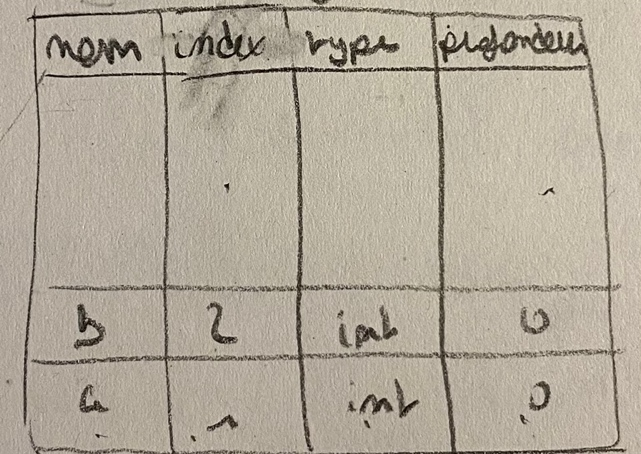 nom index type profondeur
b 2 int 0
a 1 int 0